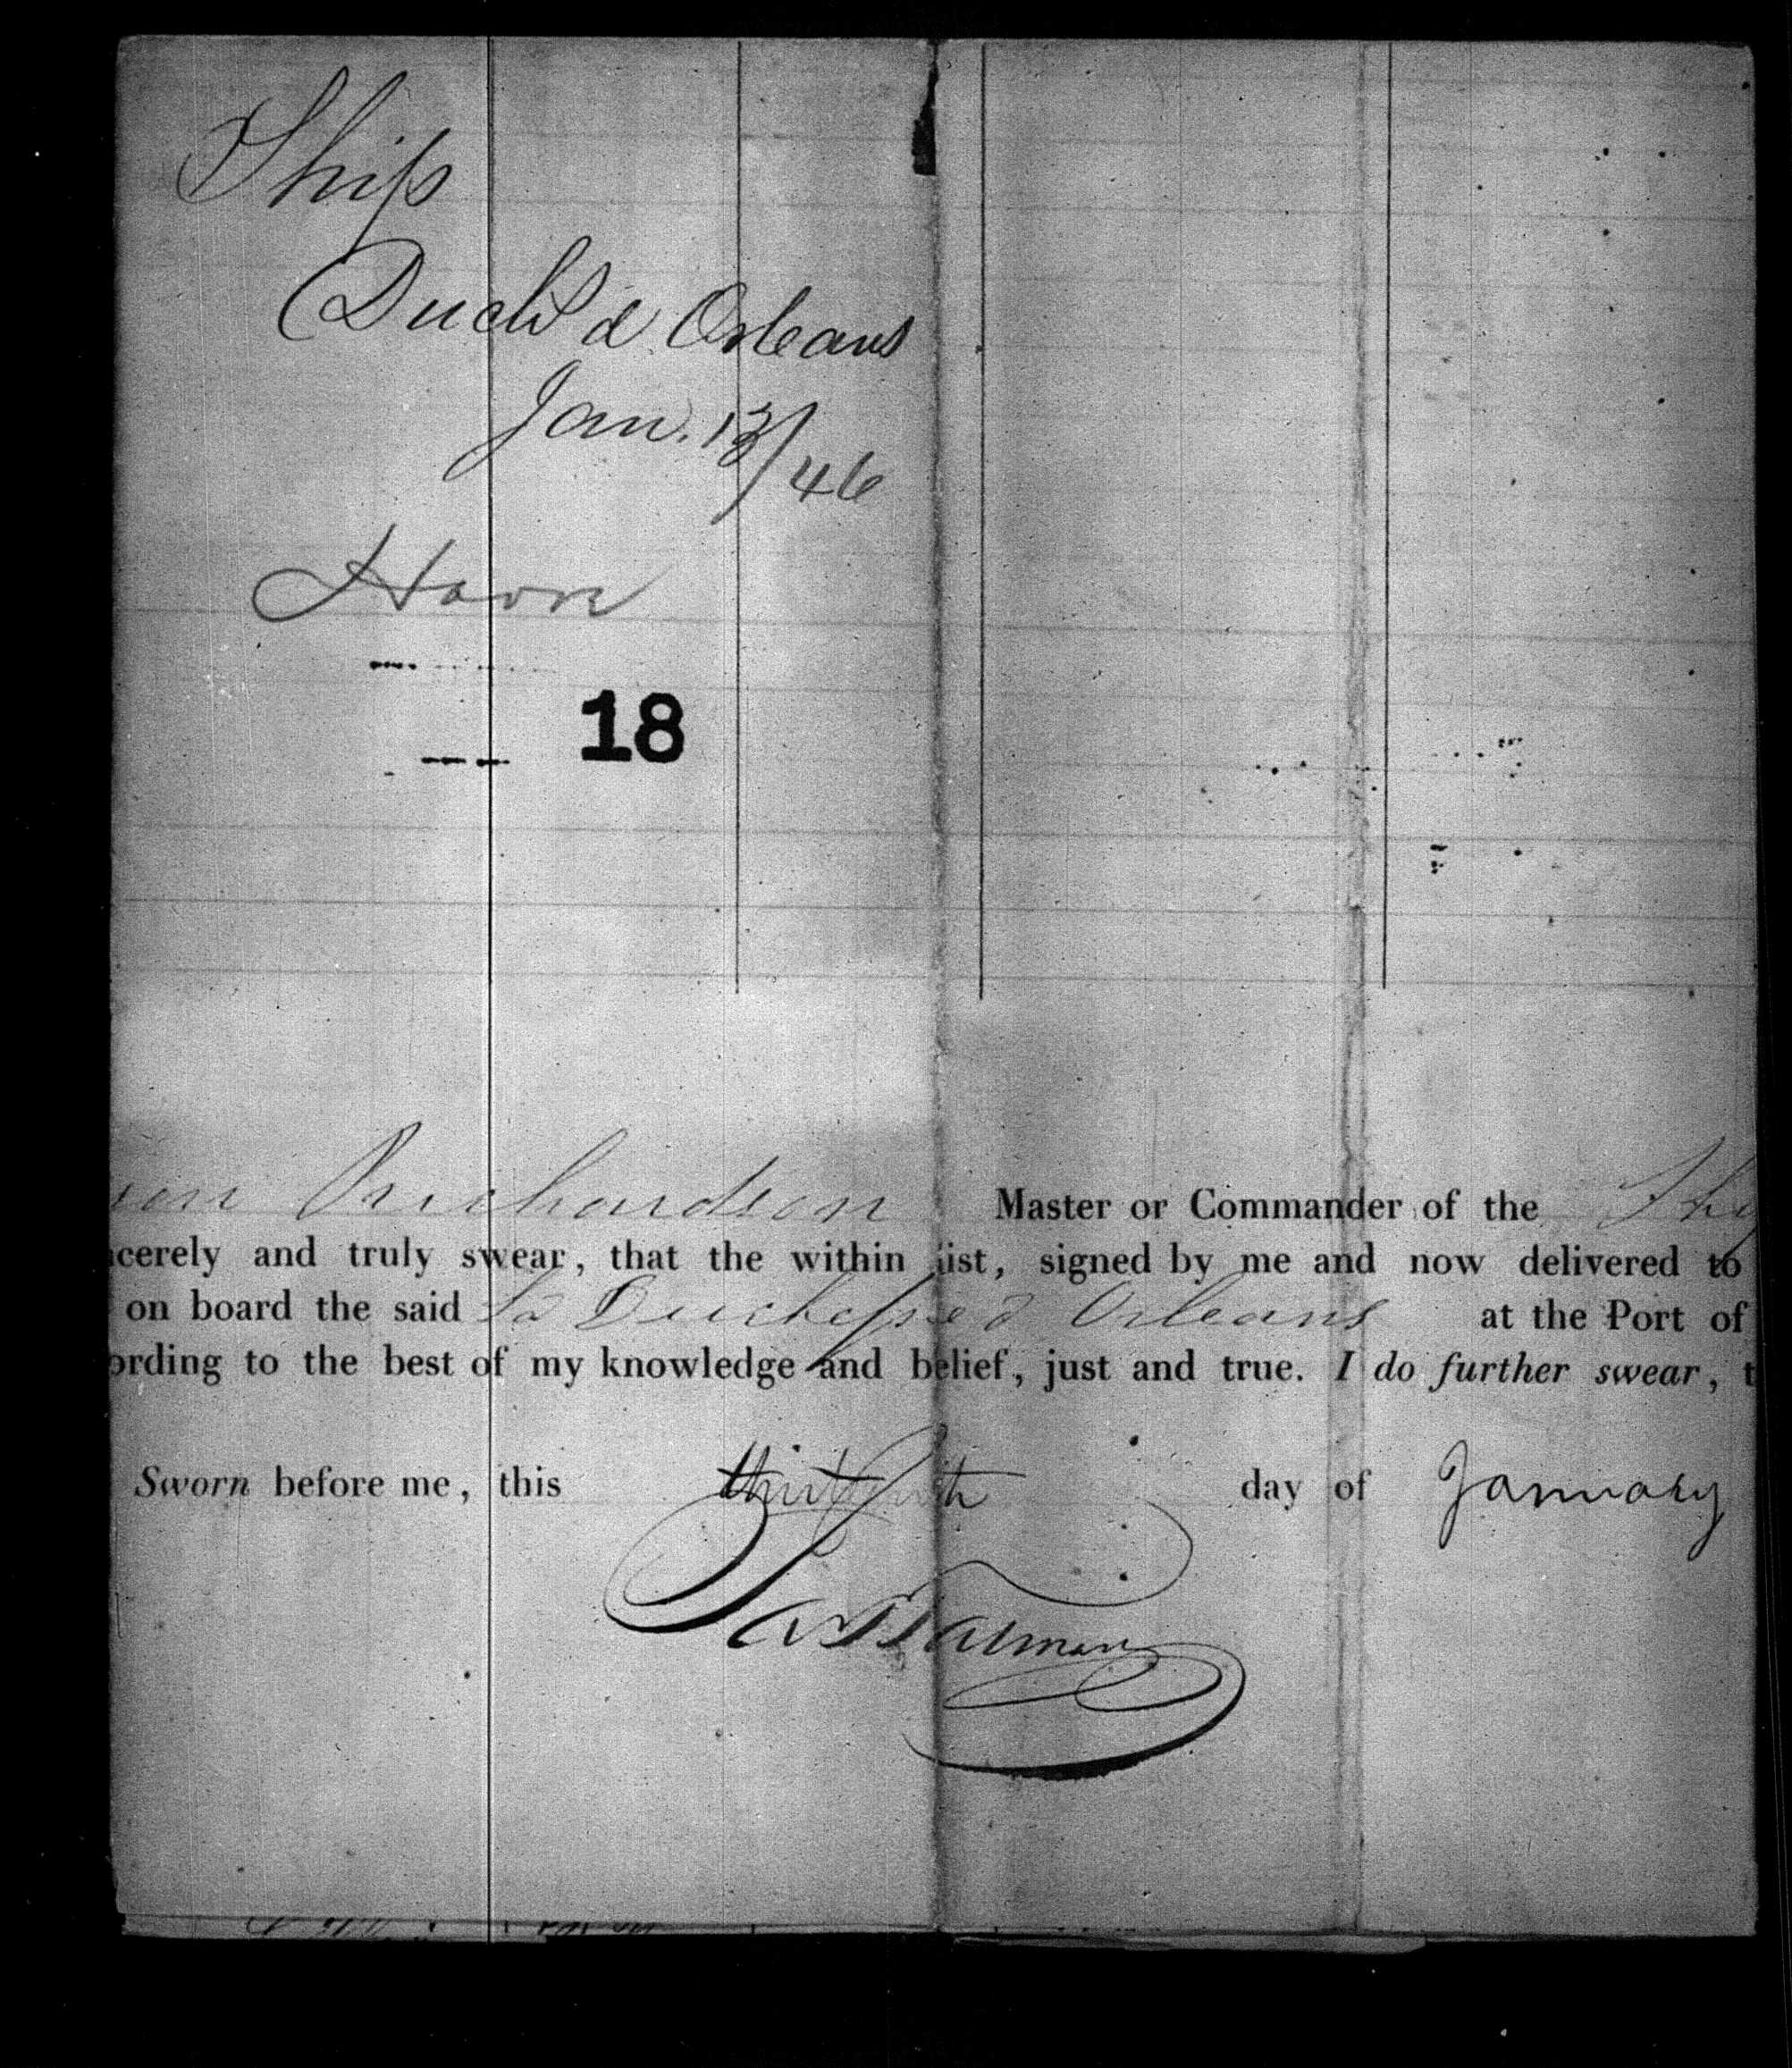 Ship
Duchs d Orleans
Jan. 13/46
Havre
18
Richardson Master or Commander of the Ship
cerely and truly swear, that the within list, signed by me and now delivered to
on board the said La Duchesse d Orleans at the Port of
ording to the best of my knowledge and belief, just and true. I do further swear, t
Sworn before me, this thirteenth day of January